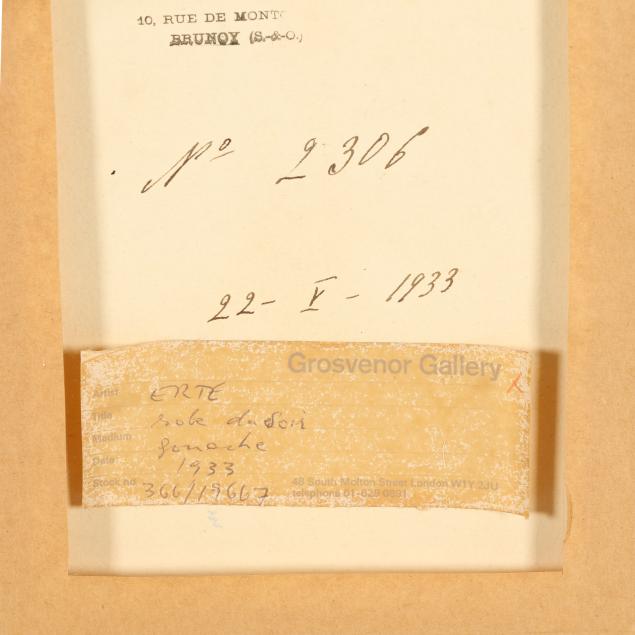 10, RUE DE MONT
BRUNOY (S.-&-O.)
No 2306
22 - V - 1933
Grosvenor Gallery
Artist ERTE
Title robe du Soir
Medium gouache
Date 1933
Stock no 366/19667
48 South Molton Street London W1Y 2JU
telephone 01-629 0891